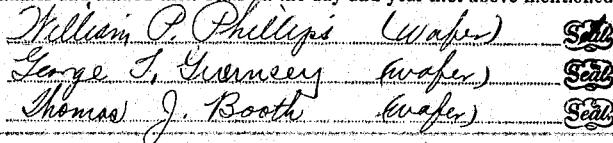 William P. Phillips (wafer) Seal
George T. Guernsey (wafer) Seal
Thomas J. Booth (wafer) Seal